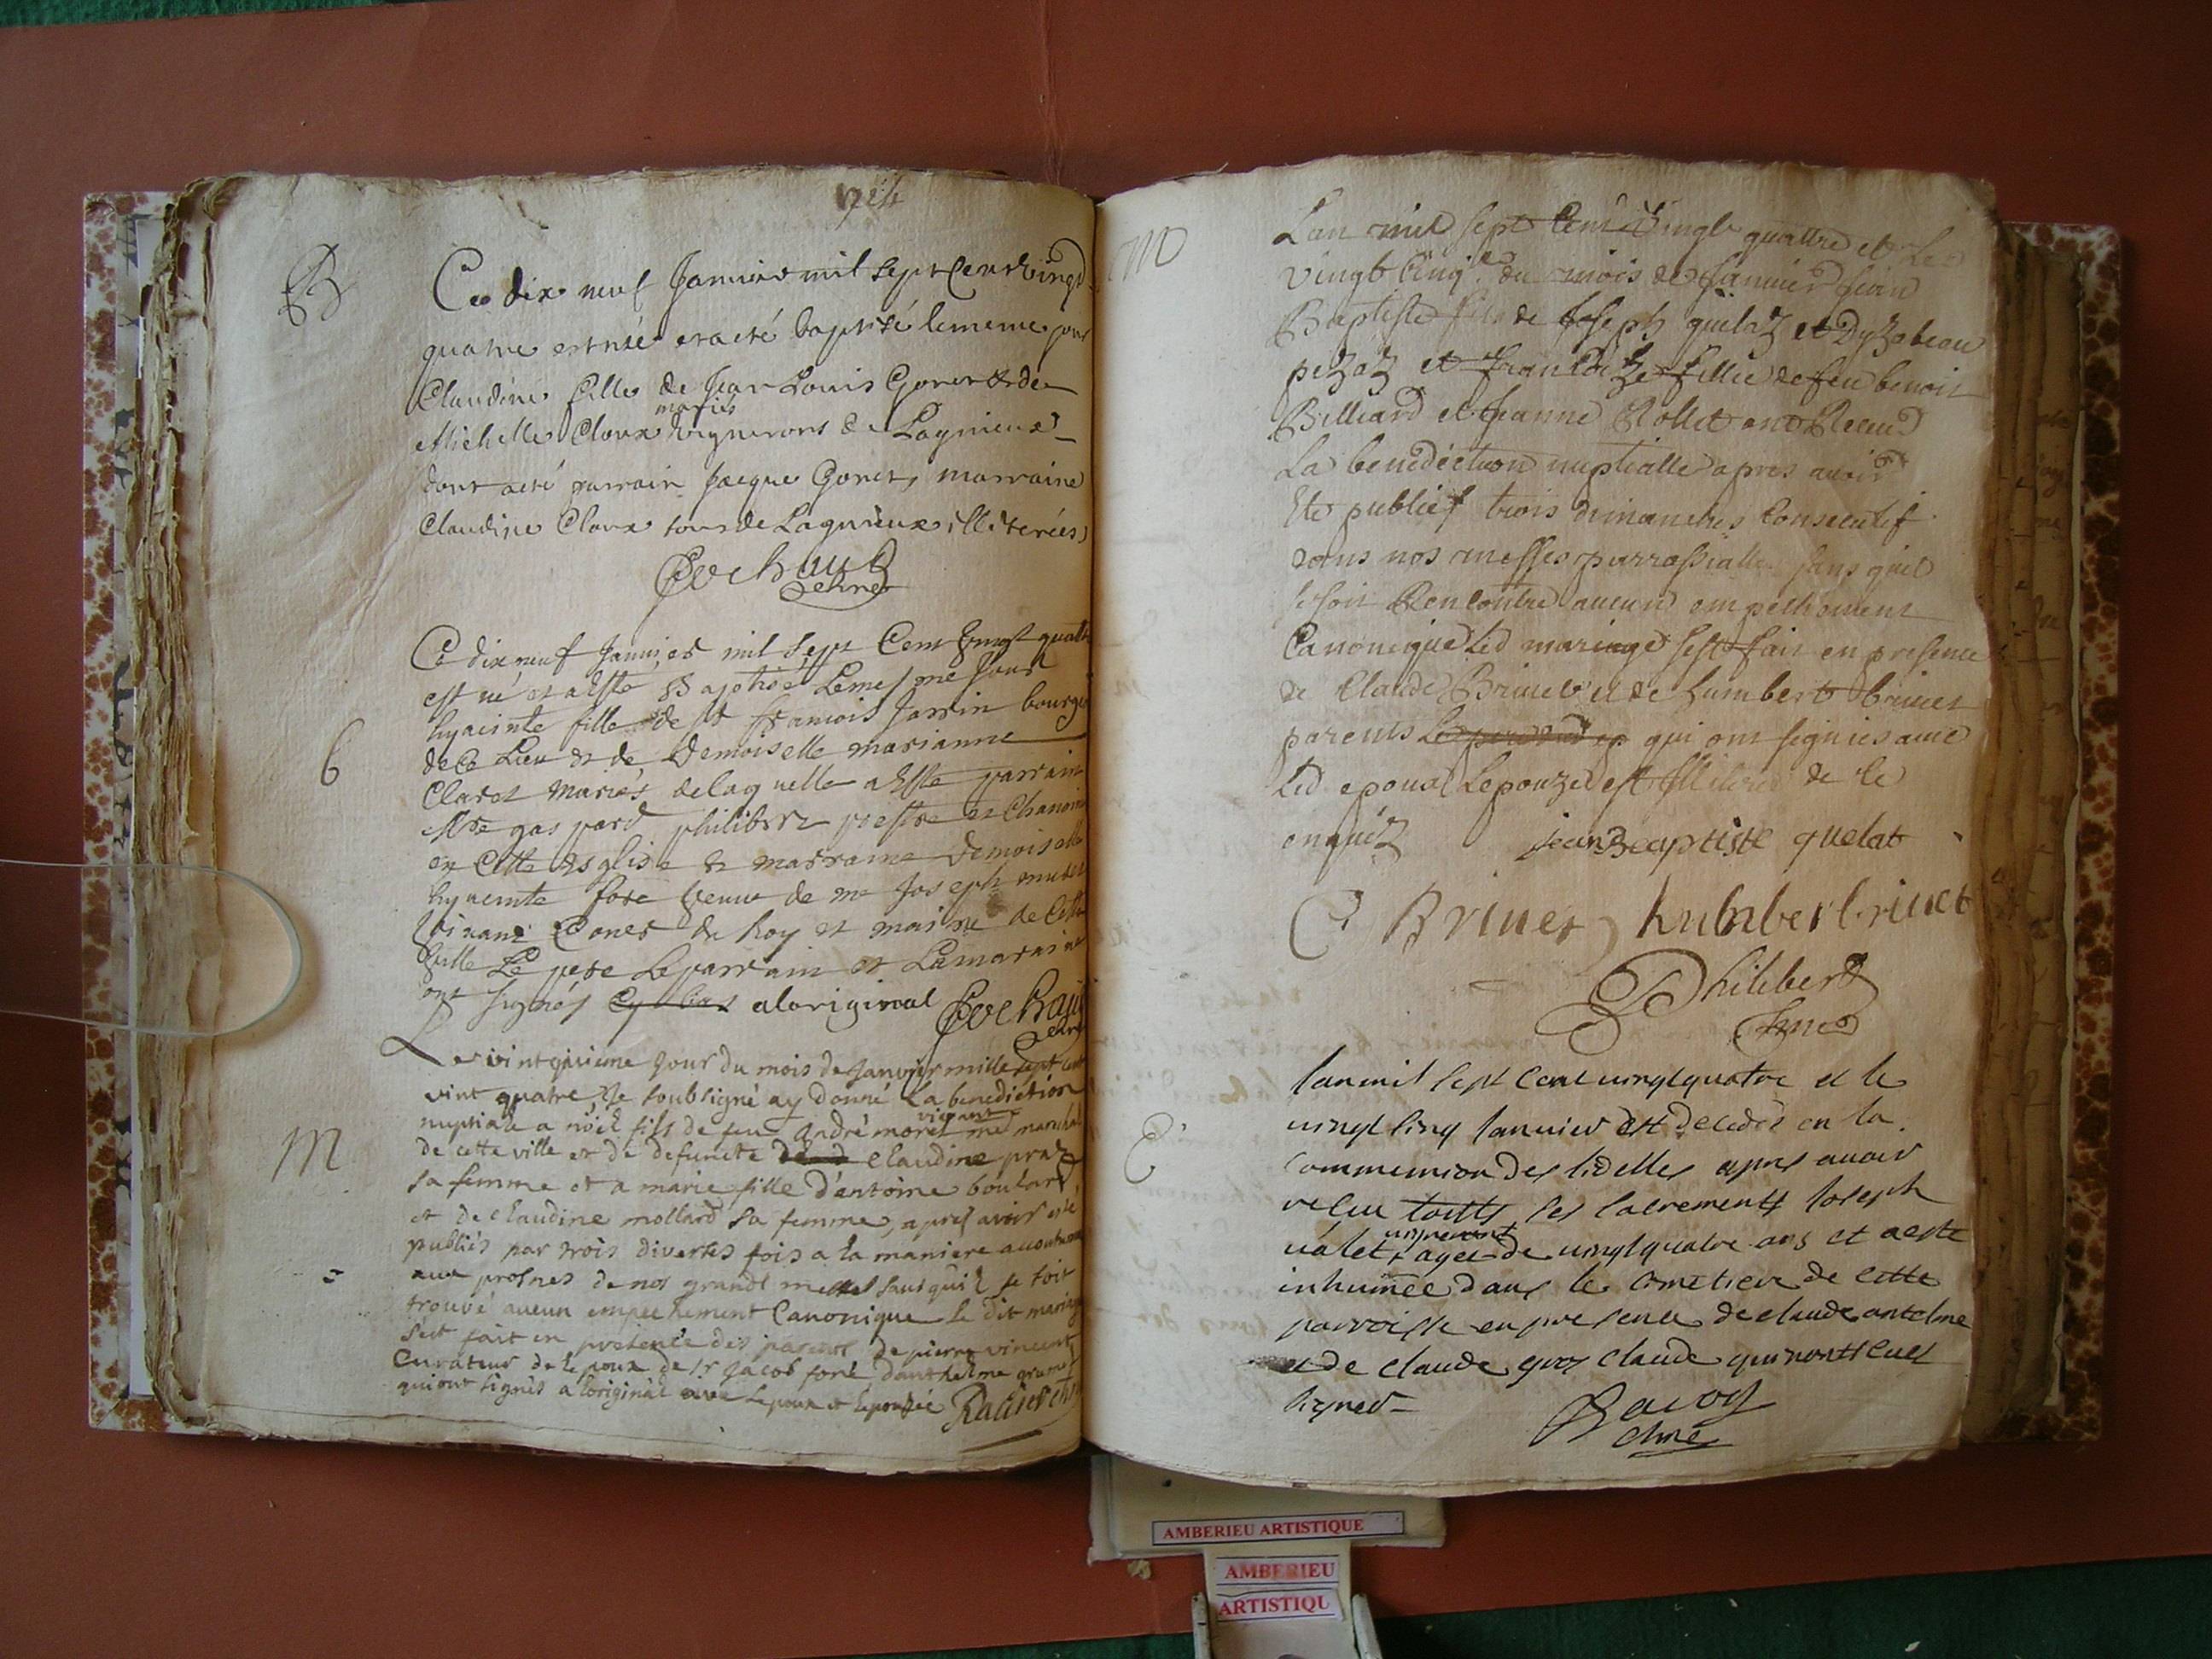 1724
B
Ce dix neuf Janvier mil sept Cent vingt
quatre est née et a eté baptisé le meme jour
Claudine fille de Jean Louis Goret & de
mariés
Michelle Cloux vignerons de Lagnieux
dont a eté parrain Jacque Goret, marraine
Claudine Cloux tous de Lagnieux illiterées
chne
Ce dix neuf Janvier mil sept Cent vingt quatre
est né et a esté Baptisé Le mesme Jour
hyacinte fille de Sr francois Jarrin bourgeois
de ce Lieu & de Demoiselle marianne
6
Claret mariés de laquelle a esté parrain
Mre gaspard philibert prestre et Chanoine
en Cette Esglise & marraine Demoiselle
hyacinte fore veuve de me Joseph
vivant du Roy et maire de Cette
ville Le pere Le parrain et La maraine
ont signés a loriginal
chne
Le vint jour du mois de Janvier mille sept cent
vint quatre Je soubsigné ay donné La benediction
vivant
nuptiale a nöel fils de feu André morel me marchal
M
de cette ville et de defuncte Claudine praz
sa femme et a marie fille d'antoine boulard
et de claudine mollard sa femme, apres avoir esté
publiés par trois diverses fois a la maniere accoutumée
aux prosnes de nos grands messes sans quil se soit
trouvé aucun empechement Canonique le dit mariage
s'est fait en presence des parents de pierre vincent
Curateur de lepoux de Sr Jacob foré danthelme
qui ont signés a loriginal avec Lepoux et lepousée
M
Lan mil sept Cent Vingt quattre et Le
vingt Cinq du mois de Janvier Jean
Baptiste fils de Joseph quelaz et Dyzabeau
pezaz et francoize fillie de feu benoit
Billiard et Jeanne Rollet ont Receu
La benediction nuptialle apres avoir
Ete publies trois dimanches Consecutif
dans nos messes parrossialle sans quil
se soit Rencontré aucun empechement
Canonique Led mariage sest fait en presence
de Claude Brunet et de humbert brunet
parents qui ont signies avec
Led epoux Lepouze est Illiterée de ce
enquéz jean Baptiste quelat
C Brunet humbert brunet
Philibert
chne
lan mil sept cent vingt quatre et le
vingt cinq Janvier est decedés en la
E
commeunion des fidelles apres avoir
receu touts ses sacrements Joseph
vigneront
valet agee de vingt quatre ans et a esté
inhumée dans le cimetiere de cette
parroisse en presence de claude antelme
et de claude gros claude qui nont sceu
signer
chne
AMBERIEU ARTISTIQUE
AMBERIEU
ARTISTIQU